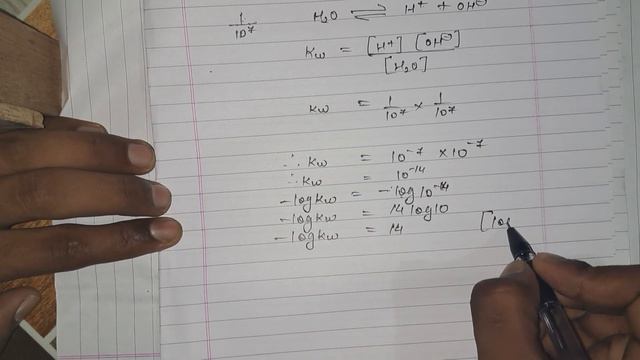 1/10⁷ H₂O ⇌ H⁺ + OH⊖
Kw = [H⁺] [OH⊖] / [H₂O]
Kw = 1/10⁷ × 1/10⁷
∴ Kw = 10⁻⁷ × 10⁻⁷
∴ Kw = 10⁻¹⁴
-log Kw = -log 10⁻¹⁴
-log Kw = 14 log 10
-log Kw = 14 [log